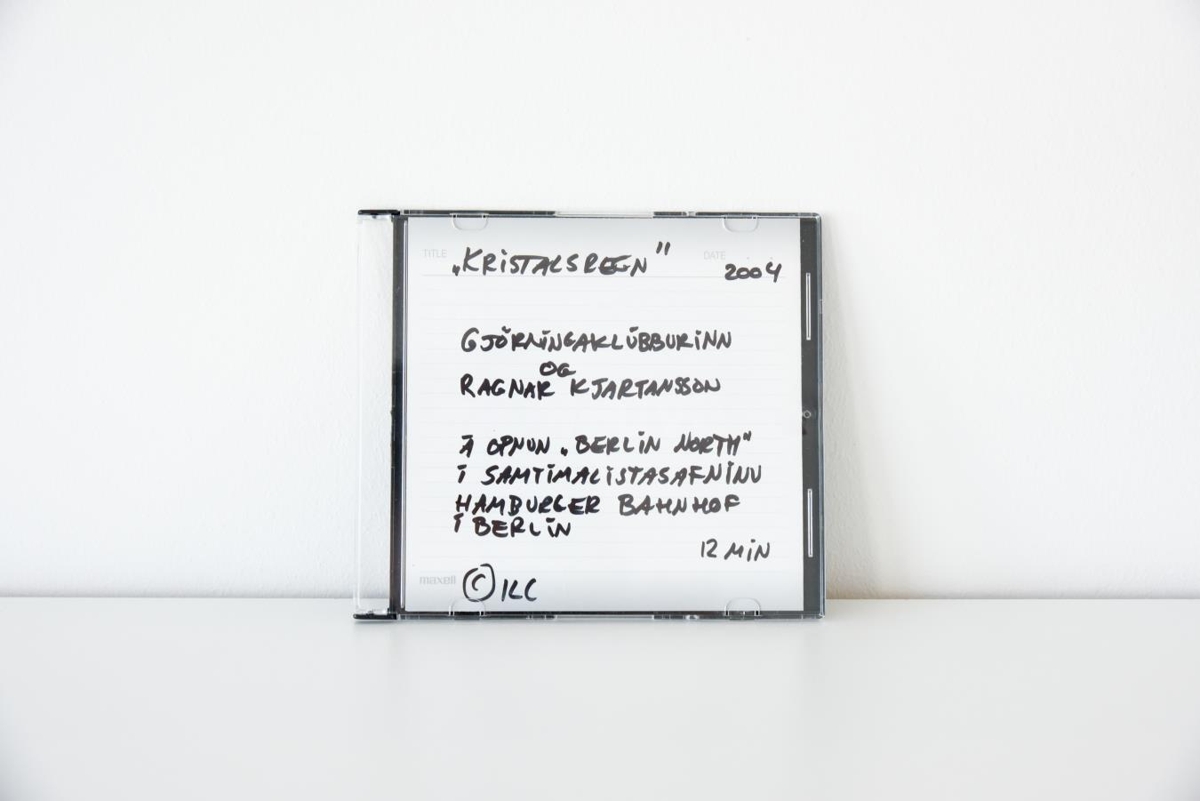 TITLE „KRISTALSREGN" DATE 2004
GJÖRNINGAKLÚBBURINN
OG
RAGNAR KJARTANSSON
Á OPNUN „BERLIN NORTH"
Í SAMTÍMALISTASAFNINU
HAMBURGER BAHNHOF
Í BERLÍN
12 MÍN
maxell © ILC